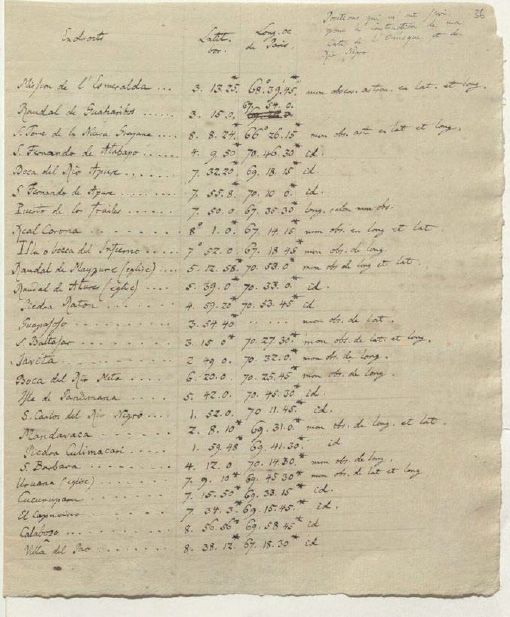 36
Positions qui m'ont servi
pour la construction de ma
Carte de l'Orenoque et du
Rio Negro
Endroits Latit. bor. Long. oc. de Paris
Mission de l'Esmeralda ... 3. 13. 25.* 68.° 39. 45.* mon observation en lat. et long.
67. 54. 0.
Raudal de Guaharibos 3. 15. 0.
S. Tomé de la Nueva Guayana .. 8. 8. 24.* 66° 26. 15* mon obs. ast. en lat et long.
S. Fernando de Atabapo ..... 4. 9. 50* 70. 46. 30* id.
Boca del Rio Apure ..... 7. 32. 20. 69. 18. 15* id.
S. Fernando de Apure ..... 7. 55. 8. 70. 10. 0. id.
Puerto de los frailes ...... 7. 50. 0. 67. 35. 30* long. selon mon obs.
Real Corona ........ 8° 1. 0.* 67. 14. 15* mon obs. en long et lat
Isla o bocca del Infierno .... 7° 52. 0. 67. 18. 45* mon obs. de long.
Raudal de Maypure (eglise) ... 5. 12. 58.* 70. 53. 0* mon obs. de long et lat.
Raudal de Atures (eglise) .... 5. 39. 0* 70. 33. 0. id.
Piedra Raton ....... 4. 59. 20* 70. 53. 45* id
3. 54. 40* ...... mon obs. de lat.
S. Baltasar ........ 3. 15. 0* 70. 27. 30* mon obs. de lat. et long.
Javita ........ 2 49. 0. 70. 32. 0* mon obs. de long.
Boca del Rio Meta ..... 6. 20. 0. 70. 25. 45* mon obs. de long.
Isle de Panumana .... 5. 42. 0. 70. 45. 30* id.
S. Carlos del Rio Negro ... 1. 52. 0. 70 11. 45.* id.
Mandavaca ....... 2. 8. 10* 69. 31. 0* mon obs. de long. et lat.
Piedra Culimacari .... 1. 59. 48* 69. 41. 30.* id
S. Barbara ........ 4. 12. 0 70. 14. 30.* mon obs. de long.
Uruana (eglise) ..... 7. 9. 10* 69. 45. 30* mon obs. de lat et long
Cucurupara ........ 7. 15. 50* 69. 33. 15* id.
El Capuchino ....... 7 34. 3.* 69. 15. 45.* id.
Calabozo ........ 8. 56. 56* 69. 58. 45* id
Villa del Pao ....... 8. 38. 12.* 67. 18. 30* id.